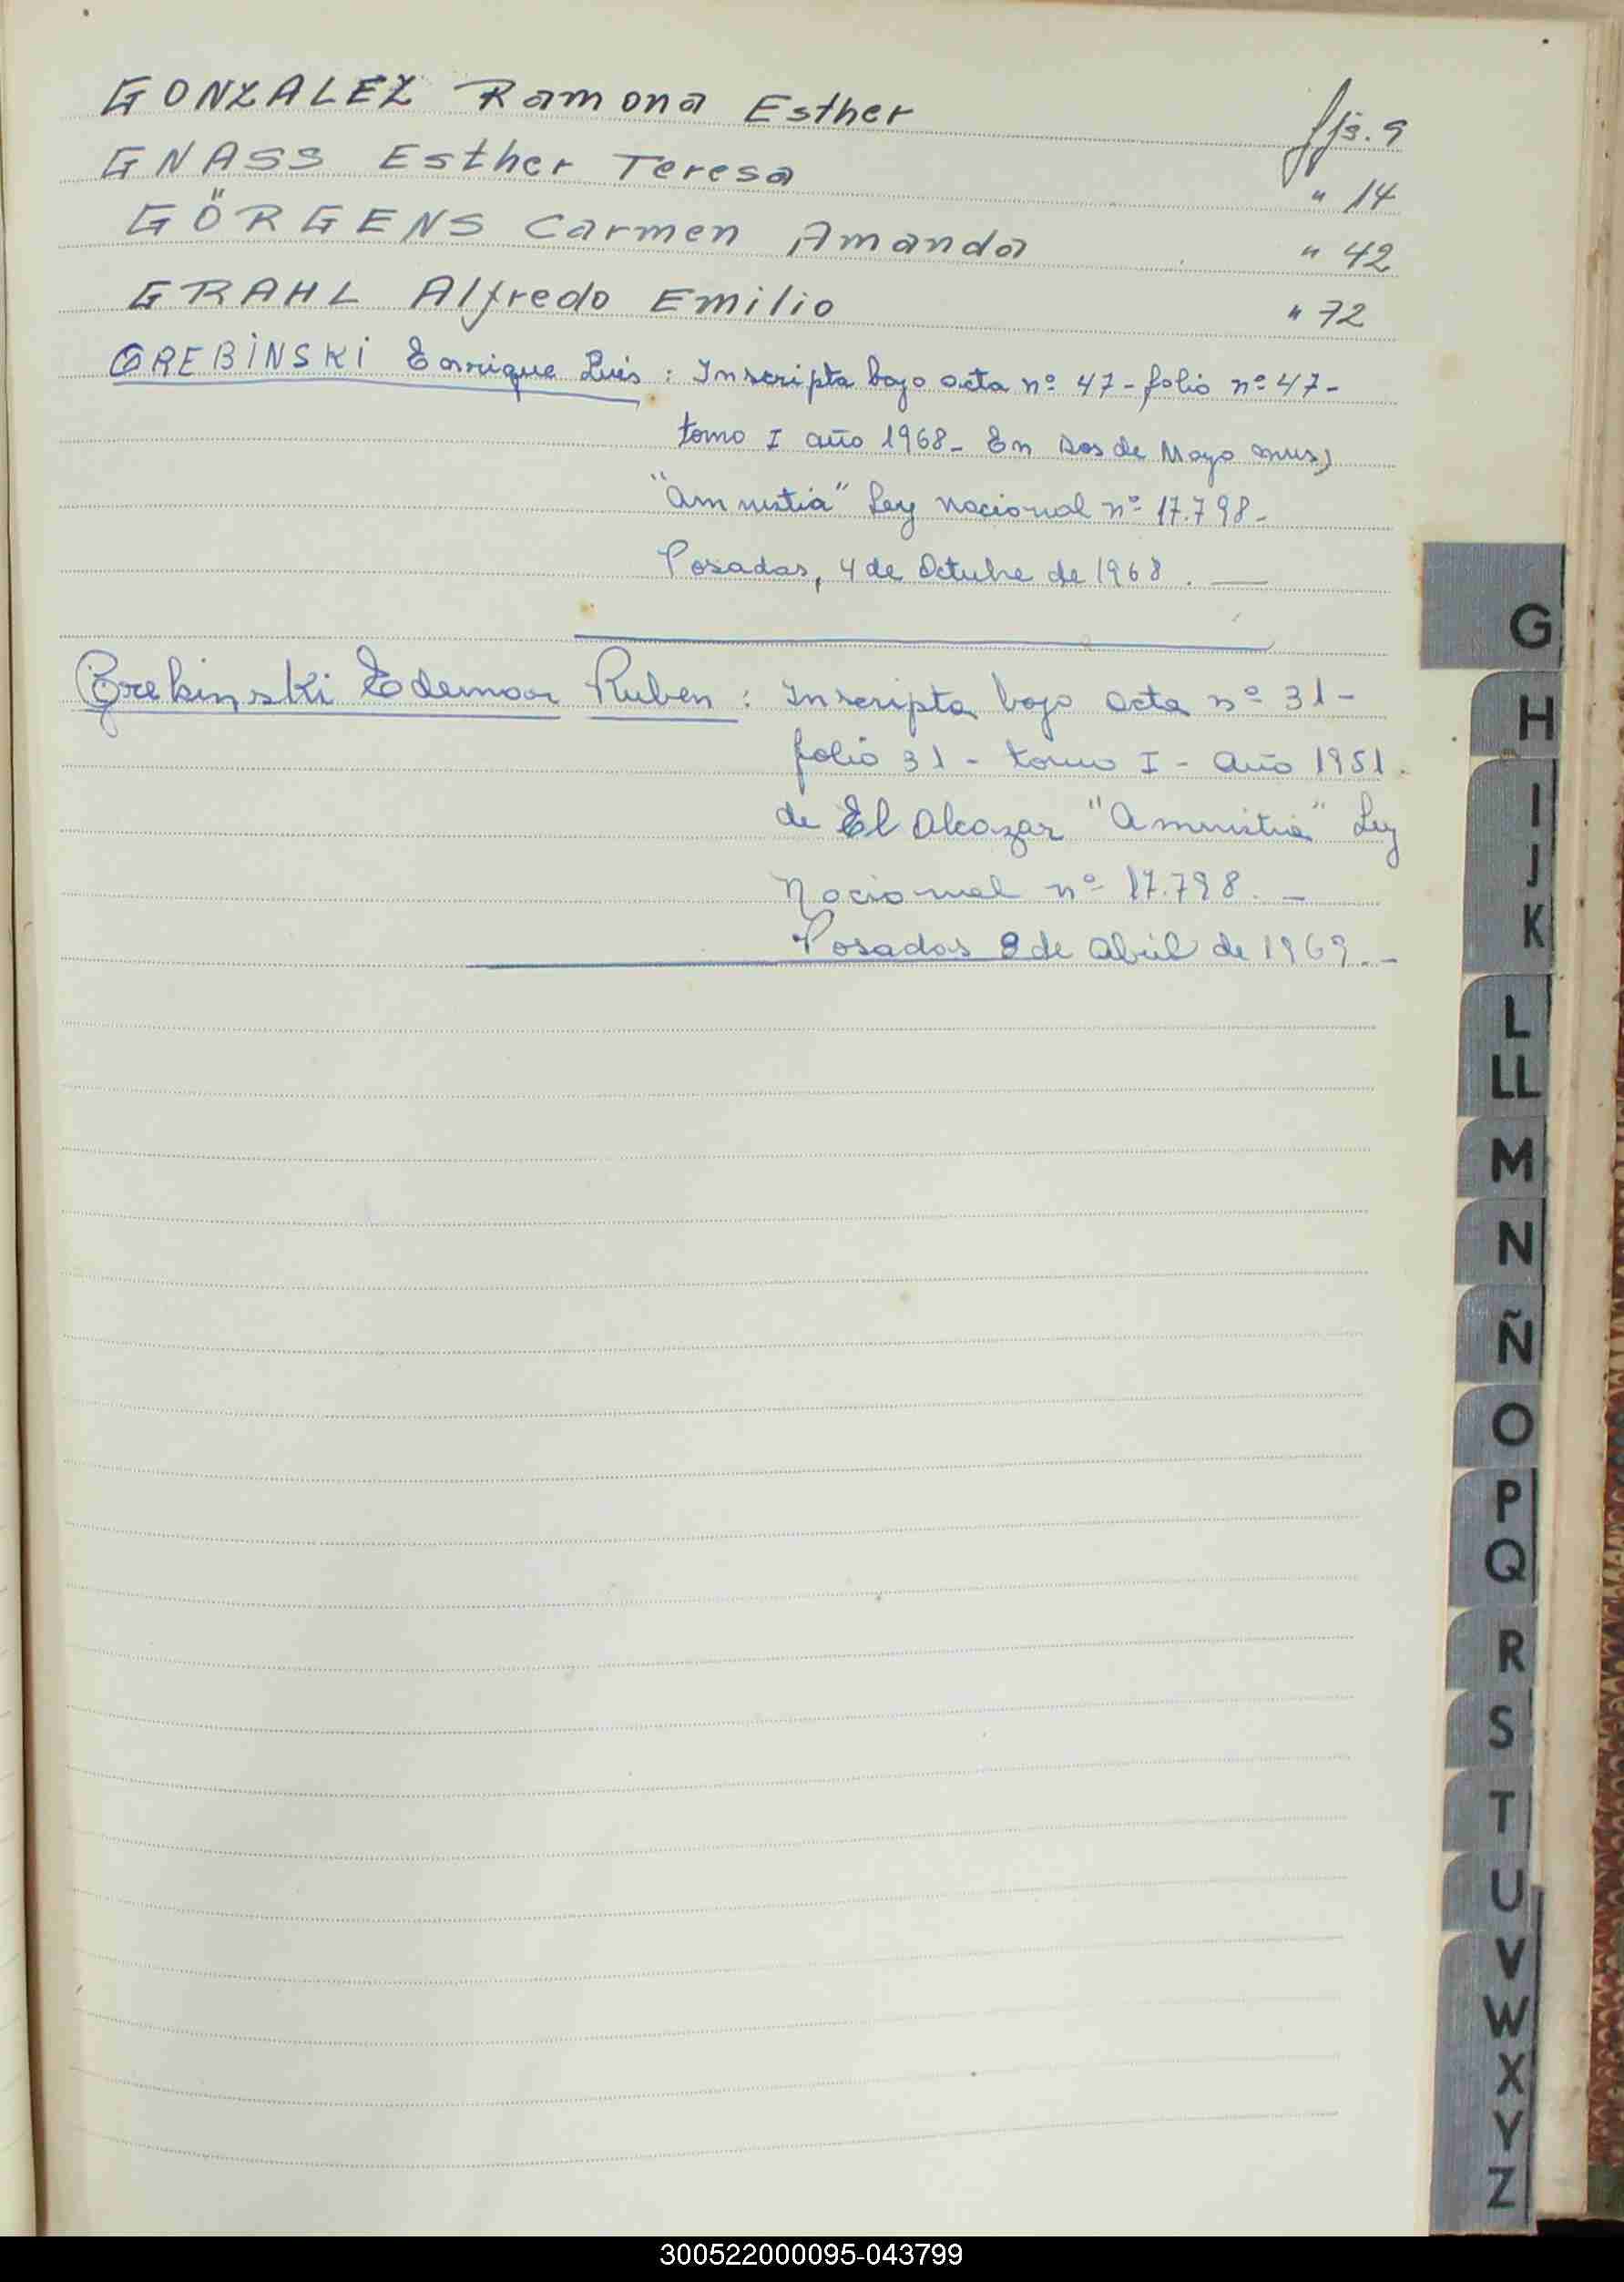 GONZALEZ Ramona Esther fjs. 9
GNASS Esther Teresa " 14
GÖRGENS Carmen Amanda " 42
GRAHL Alfredo Emilio " 72
GREBINSKI Enrique Luis : Inscripta bajo acta nº 47 - folio nº 47 -
tomo I año 1968 - En Dos de Mayo mns)
"Amnistia" Ley nacional nº 17.798 -
Posadas, 4 de Octubre de 1968 . —
Grebinski Edemar Ruben : Inscripta bajo acta nº 31 -
folio 31 - tomo I - año 1951 .
de El Alcazar "Amnistia" Ley
Nacional nº 17.798 . -
Posadas 8 de abril de 1969 . -
G
H
I
J
K
L
LL
M
N
Ñ
O
P
Q
R
S
T
U
V
W
X
Y
Z
300522000095-043799